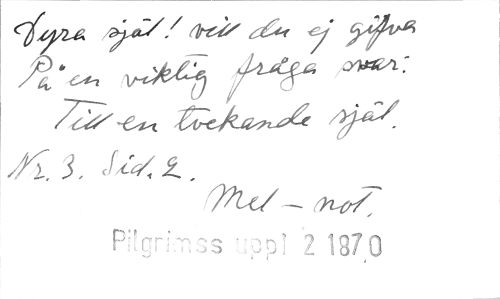 Dyra själ! vill du ej gifva
På en viktig fråga svar:
Till en tvekande själ.
Nr. 3. Sid. 2.
Mel – not.
Pilgrimss uppl 2 1870